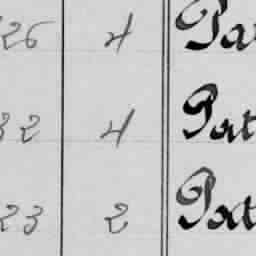 26 4 Pat
32 4 Pat
23 2 Pat